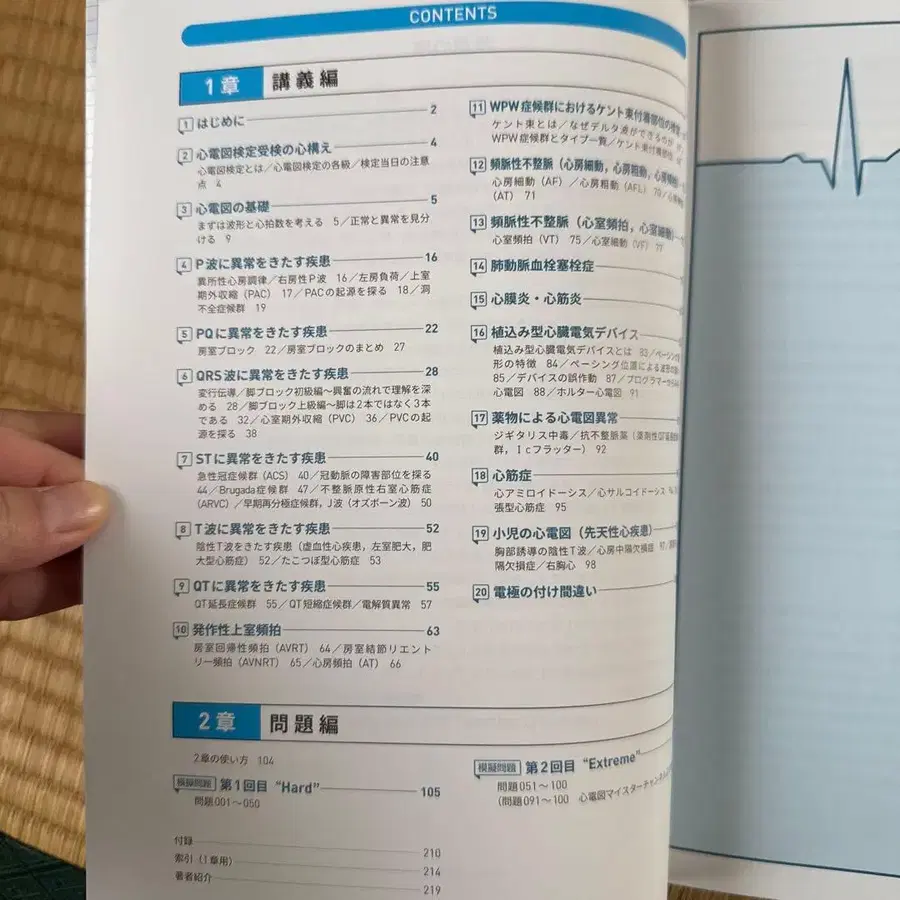 CONTENTS
1章 講義編
1 はじめに 2
2 心電図検定受検の心構え 4
心電図検定とは／心電図検定の各級／検定当日の注意
点 4
3 心電図の基礎 5
まずは波形と心拍数を考える 5／正常と異常を見分
ける 9
4 P波に異常をきたす疾患 16
異所性心房調律／右房性P波 16／左房負荷／上室
期外収縮（PAC） 17／PACの起源を探る 18／洞
不全症候群 19
5 PQに異常をきたす疾患 22
房室ブロック 22／房室ブロックのまとめ 27
6 QRS波に異常をきたす疾患 28
変行伝導／脚ブロック初級編～興奮の流れで理解を深
める 28／脚ブロック上級編～脚は2本ではなく3本
である 32／心室期外収縮（PVC） 36／PVCの起
源を探る 38
7 STに異常をきたす疾患 40
急性冠症候群（ACS） 40／冠動脈の障害部位を探る
44／Brugada症候群 47／不整脈原性右室心筋症
（ARVC）／早期再分極症候群，J波（オズボーン波） 50
8 T波に異常をきたす疾患 52
陰性T波をきたす疾患（虚血性心疾患，左室肥大，肥
大型心筋症） 52／たこつぼ型心筋症 53
9 QTに異常をきたす疾患 55
QT延長症候群 55／QT短縮症候群／電解質異常 57
10 発作性上室頻拍 63
房室回帰性頻拍（AVRT） 64／房室結節リエント
リー頻拍（AVNRT） 65／心房頻拍（AT） 66
11 WPW症候群におけるケント束付着部位の
ケント束とは／なぜデルタ波ができるのか
WPW症候群とタイプ一覧／ケント束付着部位
12 頻脈性不整脈（心房細動，心房粗動，心房頻拍）
心房細動（AF）／心房粗動（AFL） 70／心房頻拍
（AT） 71
13 頻脈性不整脈（心室頻拍，心室細動）
心室頻拍（VT） 75／心室細動（VF） 77
14 肺動脈血栓塞栓症
15 心膜炎・心筋炎
16 植込み型心臓電気デバイス
植込み型心臓電気デバイスとは 83／ペーシング
形の特徴 84／ペーシング位置による波形の
85／デバイスの誤作動 87／プログラマーから
心電図 88／ホルター心電図 91
17 薬物による心電図異常
ジギタリス中毒／抗不整脈薬（薬剤性QT延長
群，Ⅰcフラッター） 92
18 心筋症
心アミロイドーシス／心サルコイドーシス
張型心筋症 95
19 小児の心電図（先天性心疾患）
胸部誘導の陰性T波／心房中隔欠損症 97／
隔欠損症／右胸心 98
20 電極の付け間違い
2章 問題編
2章の使い方 104
模擬問題 第1回目 “Hard” 105
問題001～050
模擬問題 第2回目 “Extreme”
問題051～100
（問題091～100 心電図マイスターチャンネル
付録 210
索引（1章用） 214
著者紹介 219